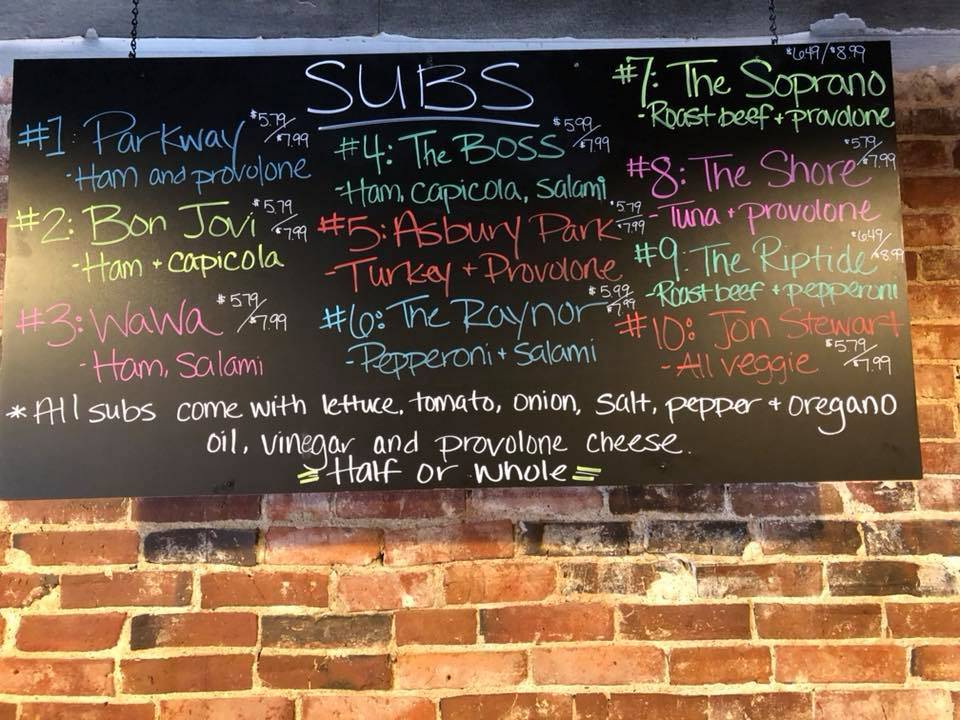 SUBS
#1: Parkway $5.79/$7.99
-Ham and provolone
#2: Bon Jovi $5.79/$7.99
-Ham + capicola
#3: WaWa $5.79/$7.99
-Ham, Salami
#4: The BOSS $5.99/$7.99
-Ham, capicola, salami
#5: Asbury Park $5.79/$7.99
-Turkey + Provolone
#6: The Raynor $5.99/$7.99
-Pepperoni + salami
#7: The Soprano $6.49/$8.99
-Roast beef + provolone
#8: The Shore $5.79/$7.99
-Tuna + provolone
#9: The Riptide $6.49/$8.99
-Roast beef + pepperoni
#10: Jon Stewart
-All veggie $5.79/$7.99
*All subs come with lettuce, tomato, onion, salt, pepper + oregano
oil, vinegar and provolone cheese.
Half or whole